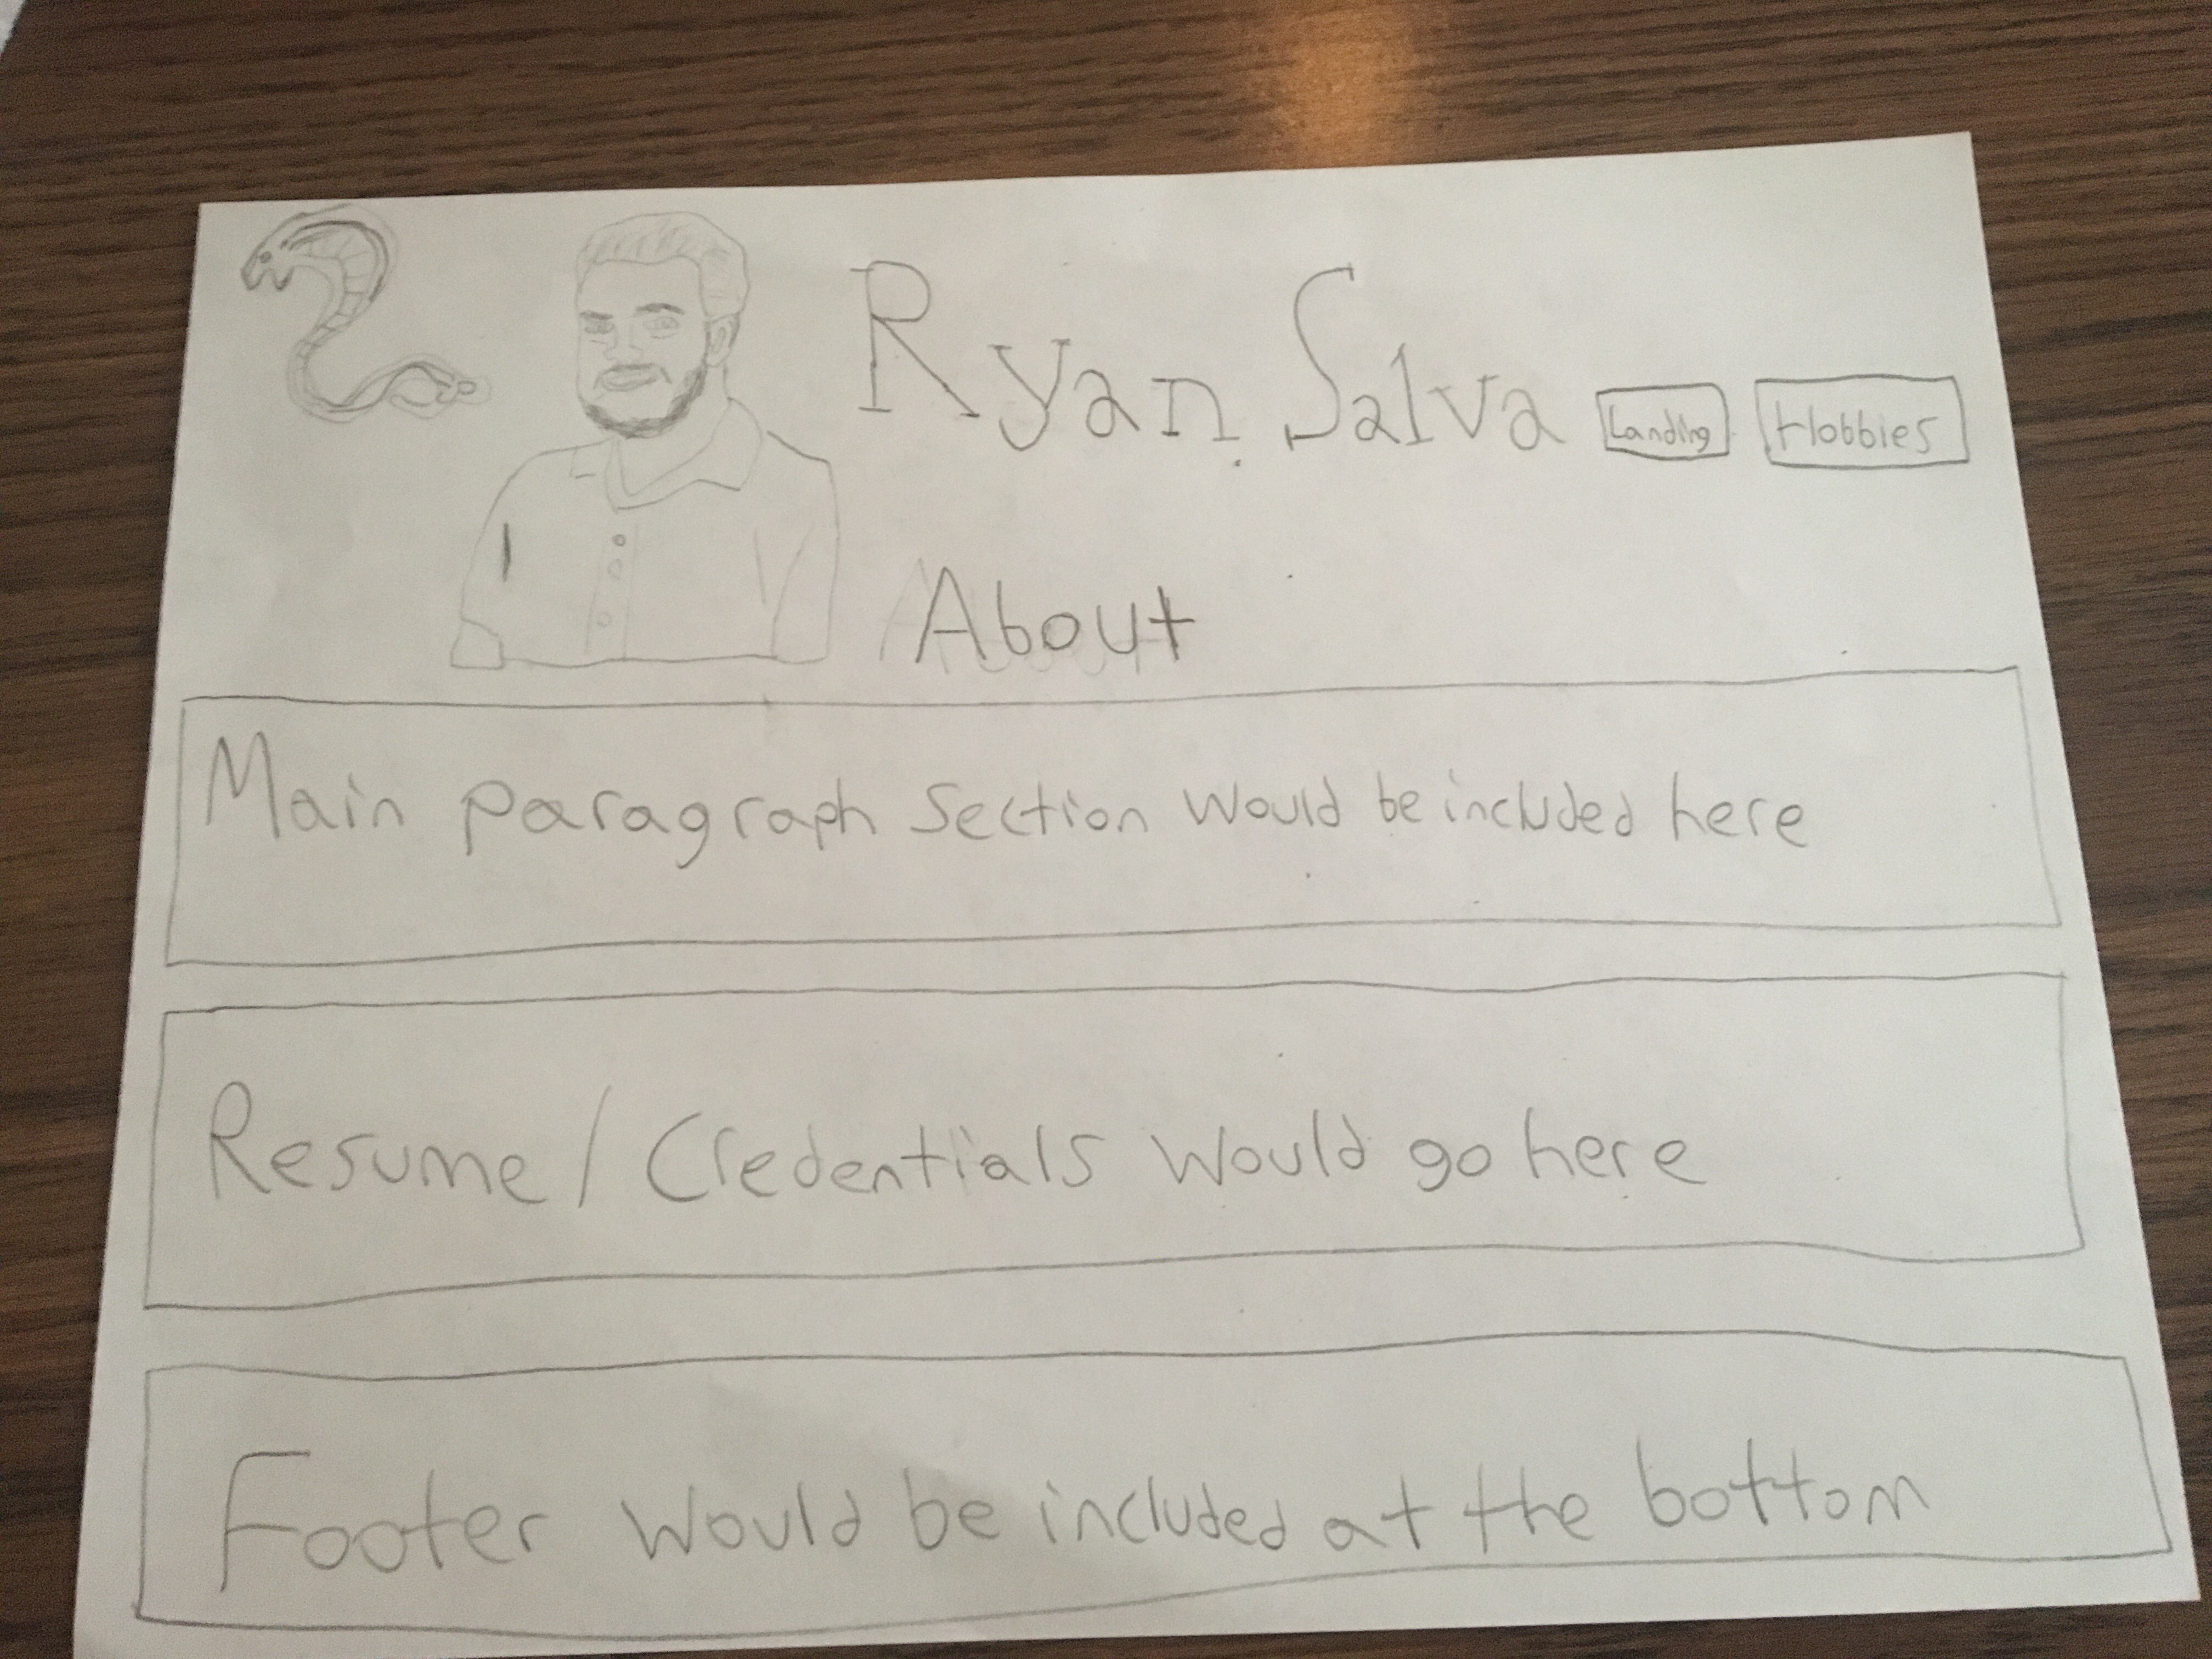 Ryan Salva
Landing
Hobbies
About
Main paragraph Section would be included here
Resume / Credentials would go here
Footer would be included at the bottom